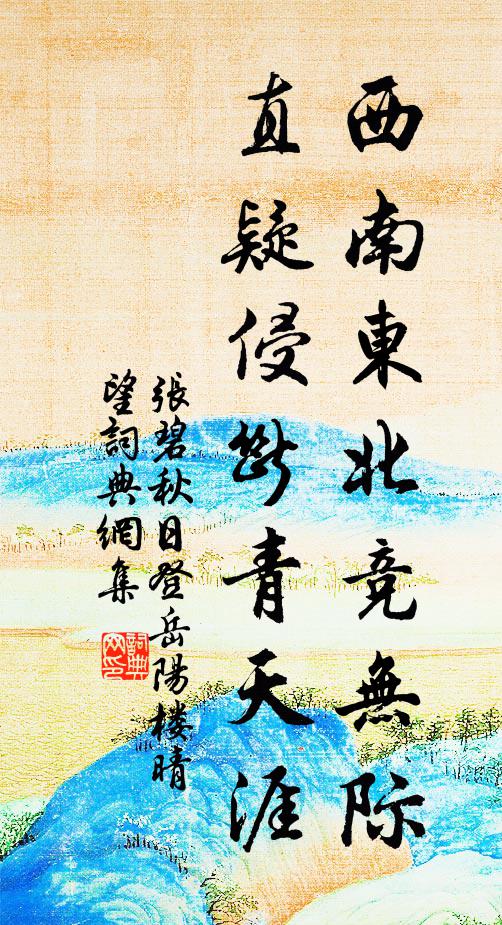 西南東北竞無际
直疑侵断青天涯
張碧秋日登岳陽楼晴
望詞典網集
詞典
网印